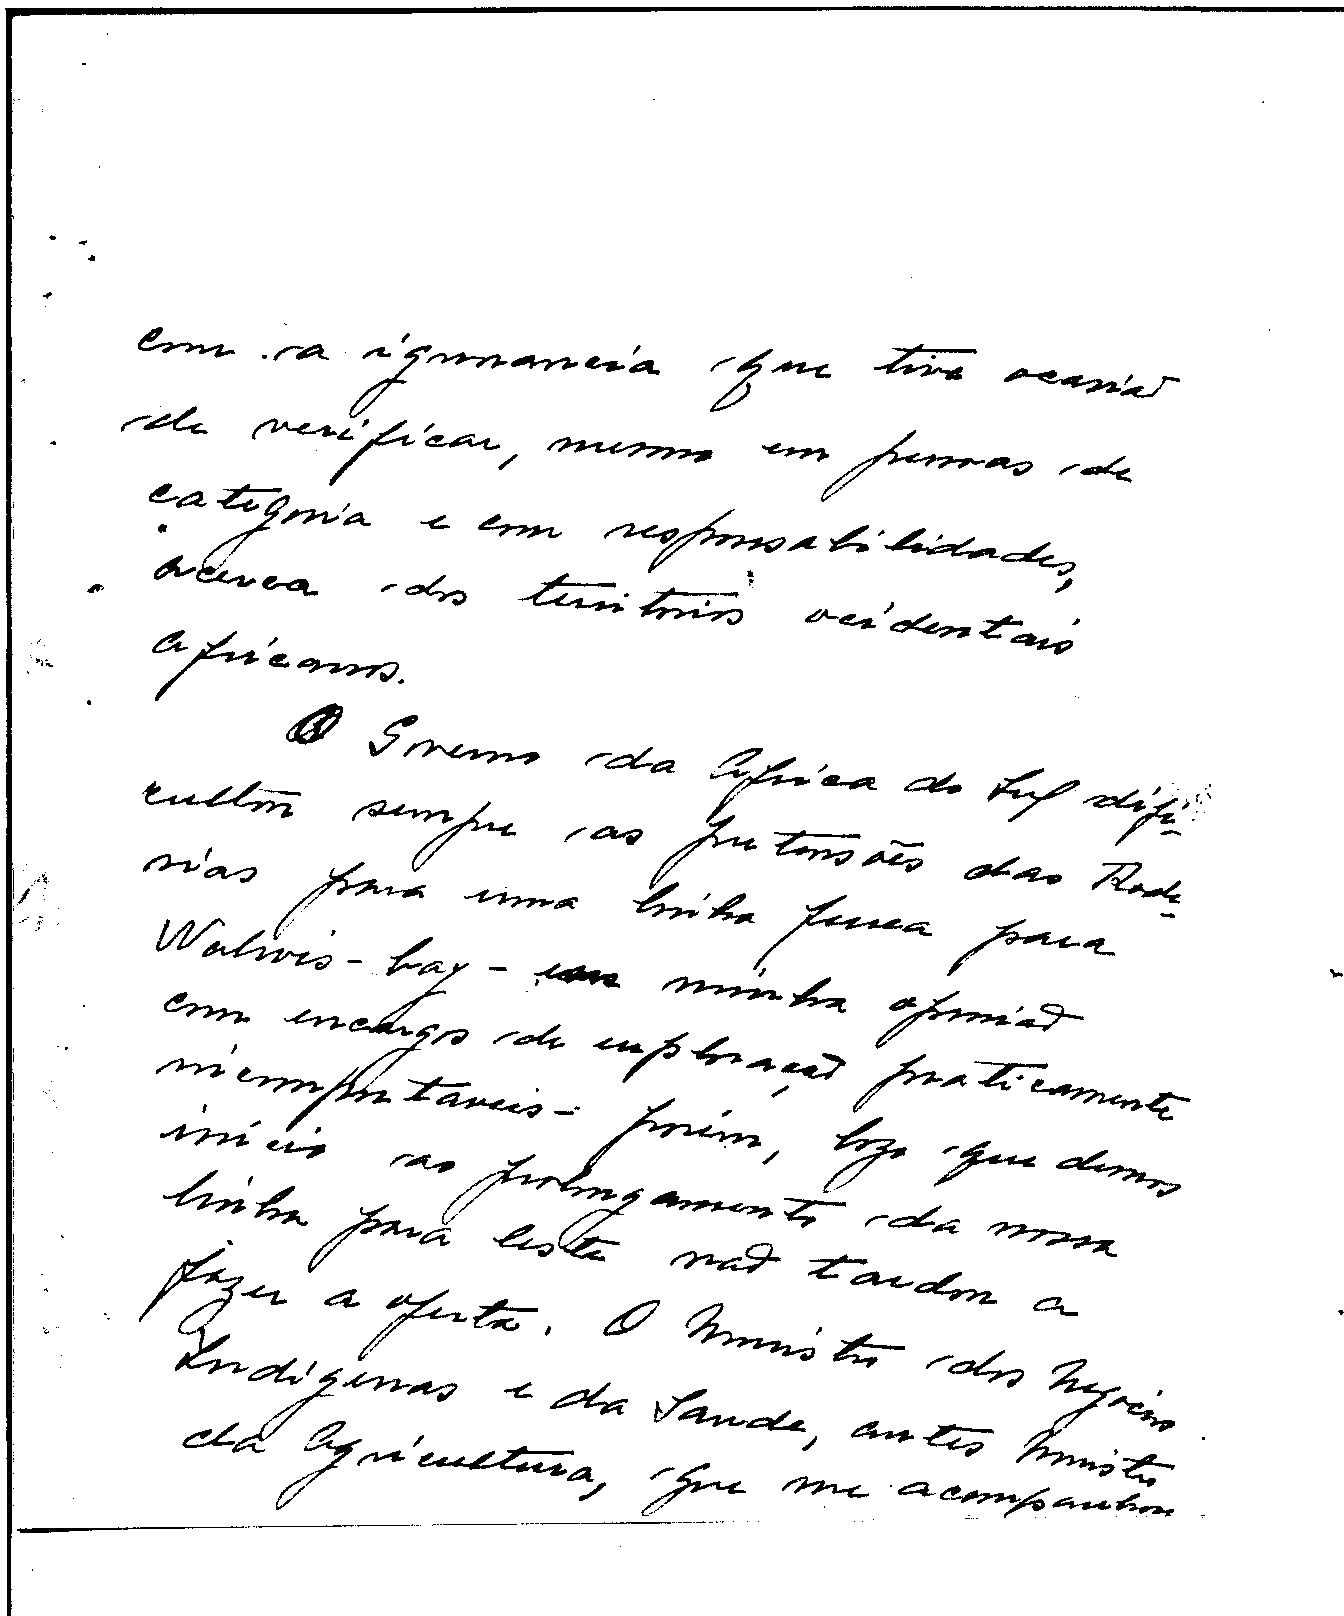 com a ignorancia que tive ocasião
de verificar, mesmo em pessoas de
categoria e com responsabilidades,
acerca dos territorios ocidentais
africanos.
O Governo da Africa do Sul difi-
cultou sempre as pretensões das Rode-
sias para uma linha ferrea para
Walwis-bay - minha opinião
com encargos de exploração praticamente
incomportaveis - porém, logo que demos
inicio ao prolongamento da nossa
linha para leste não tardou a
fazer a oferta. O Ministro dos Negocios
Indigenas e da Saude, antes Ministro
da Agricultura, que me acompanhou